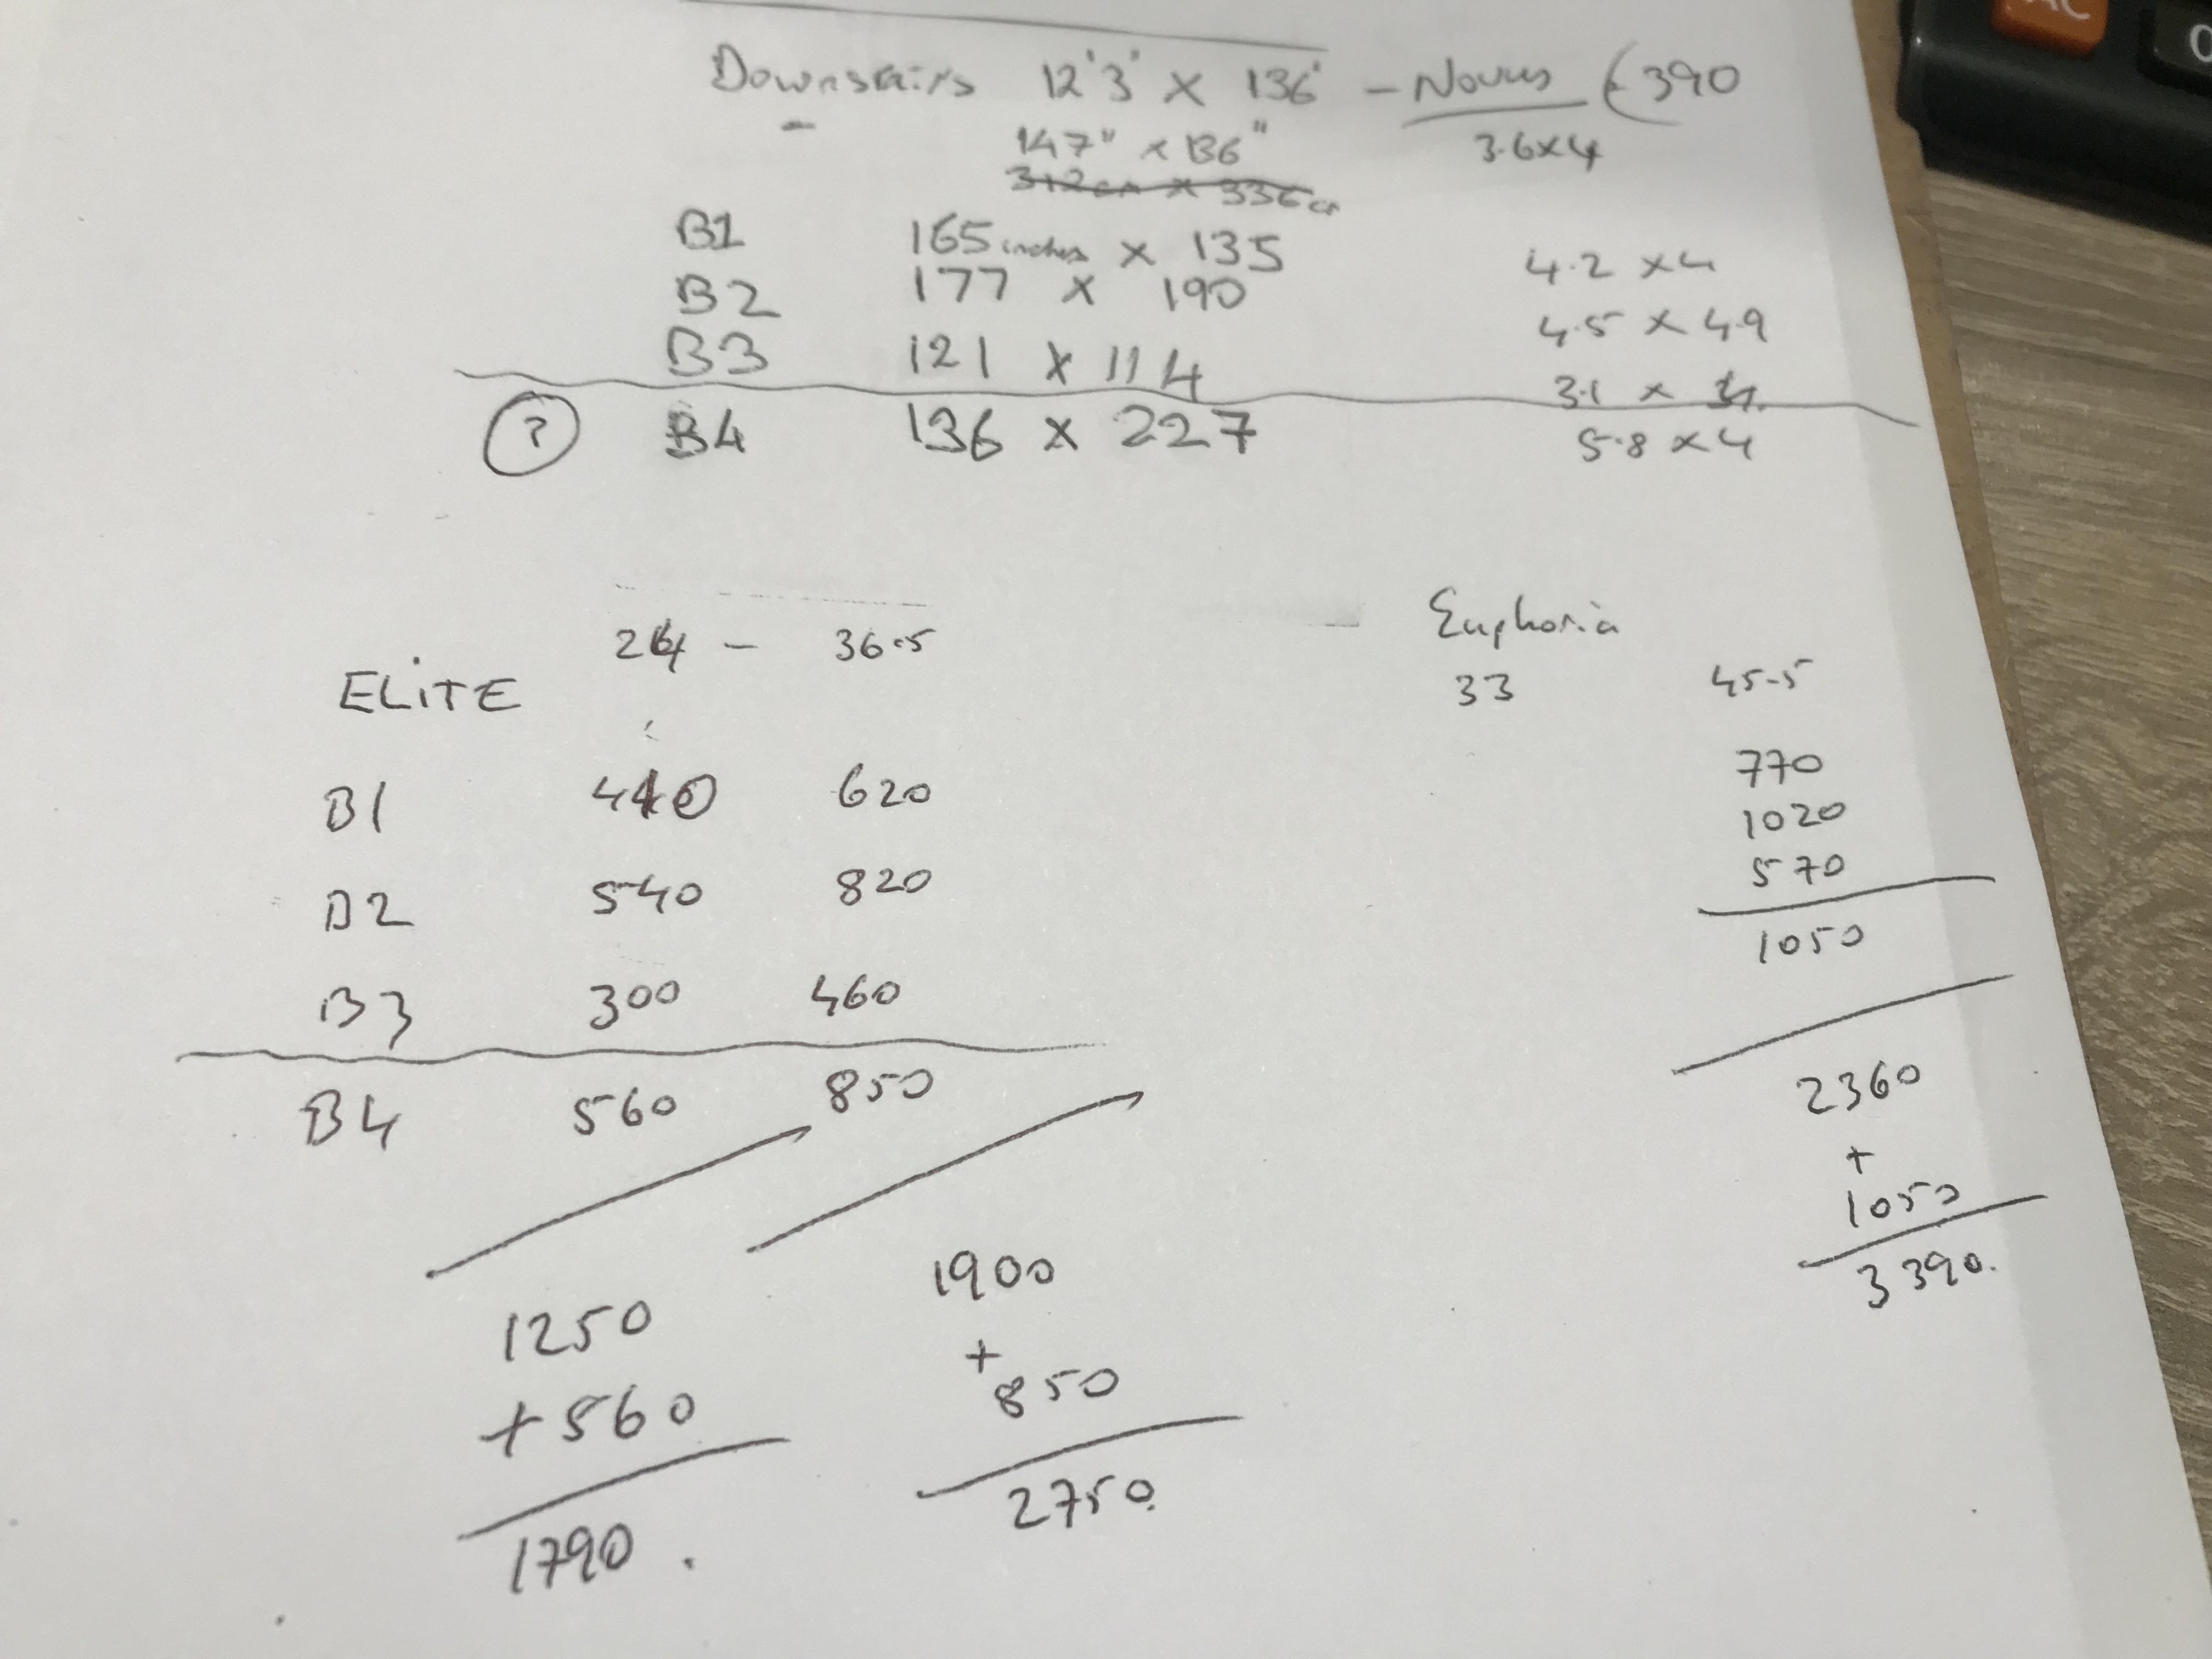 Downstairs 12'3" x 136" - Novus £390
147" x 136"
3.6x4
312cm x 336cm
B1 165 inches x 135 4.2 x 4
B2 177 x 190 4.5 x 4.9
B3 121 x 114 3.1 x
? B4 136 x 227 5.8 x 4
Euphoria
24 - 36.5
ELITE
33 45.5
B1 410 620 770
B2 540 820 1020
570
1050
B3 300 460
B4 560 850
2360
+
1050
3390.
1250
+560
1790.
1900
+
850
2750.
AC
0